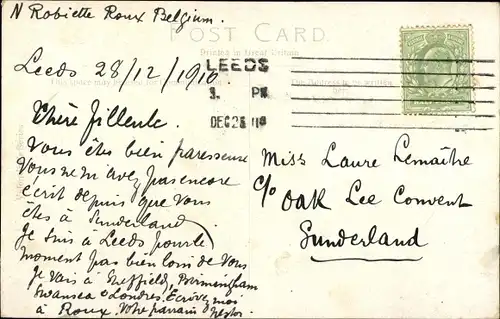 N Robiette Roux Belgium.
POST CARD.
Printed in Great Britain
Leeds 28/12/1910
LEEDS
PM
DEC 28 10
Chère filleule.
Vous êtes bien paresseuse
Vous ne m'avez pas encore
écrit depuis que vous
êtes à Sunderland.
Je suis à Leeds pour le
moment pas bien loin de vous
Je vais à Sheffield, Birmingham
Swansea & Londres. Écrivez moi
à Roux. Votre parrain Nestor.
Miss Laure Lemaître
c/o Oak Lee Convent
Sunderland